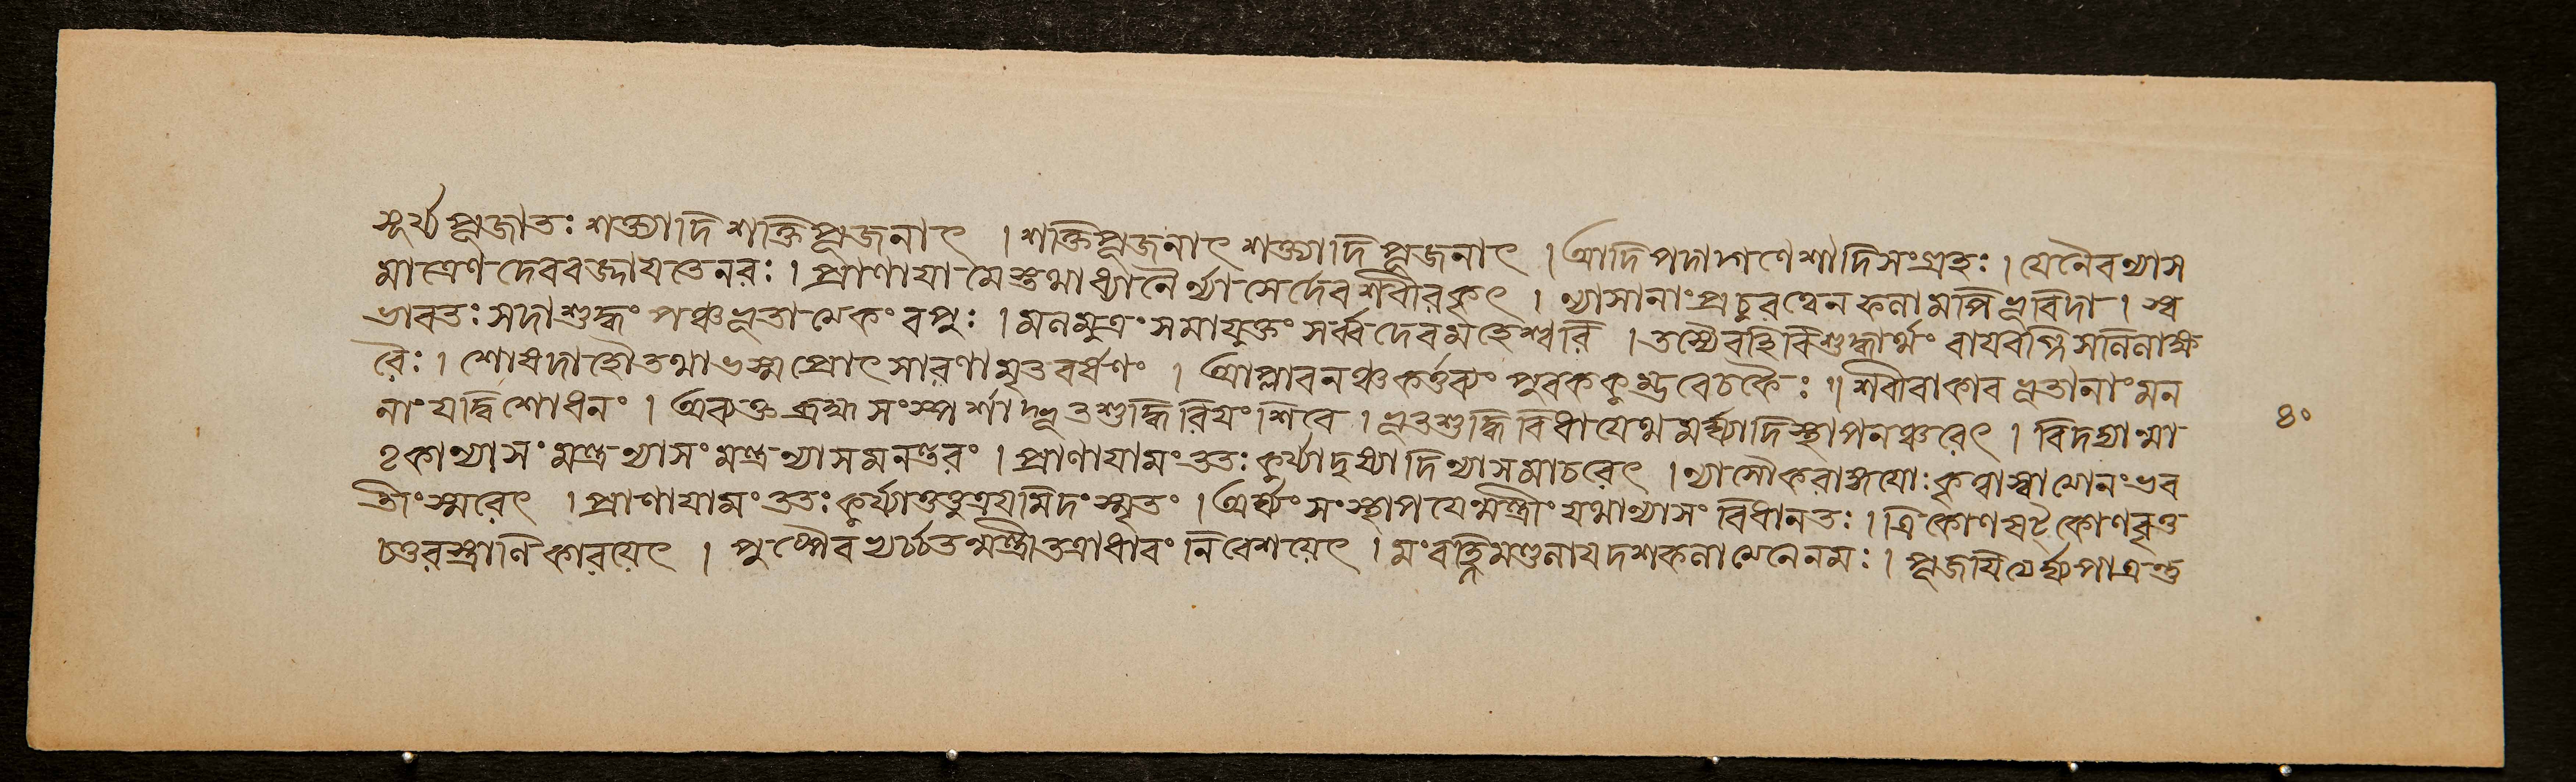 সূর্য্য পূজাতঃ শক্ত্যাদি শক্তিপূজনাৎ । শক্তিপূজনাৎ শক্ত্যাদি পূজনাৎ । আদি পদাদ্গণেশাদিসংগ্রহঃ । যেনৈবন্যাস
মাত্রেণ দেববজ্জায়তে নরঃ । প্রাণায়ামৈস্তথাধ্যানৈর্ন্যাসৈর্দেবশরীরকৃৎ । ন্যাসানাং প্রচুরত্বেন ফলামপি ভূরিদা । স্ব
ভাবতঃ সদাশুদ্ধং পঞ্চভূতাত্মকং বপুঃ । মলমুত্রং সমাযুক্তং সর্ব্বদেবমহেশ্বরি । তস্যৈবহিবিশুদ্ধ্যর্থং বায়বগ্নিসলিলাক্ষ
রৈঃ । শোষদাহৌ তথাভস্ম প্রোৎসারণামৃতবর্ষণং । আপ্লাবনঞ্চকর্ত্তব্যং পুরককুম্ভরেচকৈঃ ॥ শরীরাকার ভূতানাং মন
নাং যদ্বিশোধনং । অব্যক্ত ব্রহ্ম সংস্পর্শাদ্ভূতশুদ্ধিরিয়ং শিবে । ভূতশুদ্ধি বিধায়েথমর্ঘ্যাদিস্থাপনঞ্চরেৎ । বিদগ্ধামা
তৃকান্যাসং মন্ত্রন্যাসং মন্ত্রন্যাসমনন্তরং । প্রাণায়ামং ততঃ কুর্য্যাদৃষ্যাদিন্যাসমাচরেৎ । ন্যাসৌ করাঙ্গয়োঃ কৃত্বাস্বাত্মেনং ভব
তিং স্মরেৎ । প্রাণায়ামং ততঃ কুর্য্যাত্তত্ত্বত্রয়মিদং স্মৃতং । অর্ঘ্যং সংস্থাপয়েন্মন্ত্রীং যথান্যাসং বিধানতঃ । ত্রিকোণষট্কোণবৃত্ত
চতুরস্ত্রাণিকারয়েৎ । পুষ্পৈরভ্যর্চ্চতন্মন্ত্রীতত্রাধারং নিবেশয়েৎ । মংবহ্ণিমণ্ডলায়দশকলাত্মনেনমঃ । পূজয়িত্বের্ঘ্যপাত্রন্তু
৪০